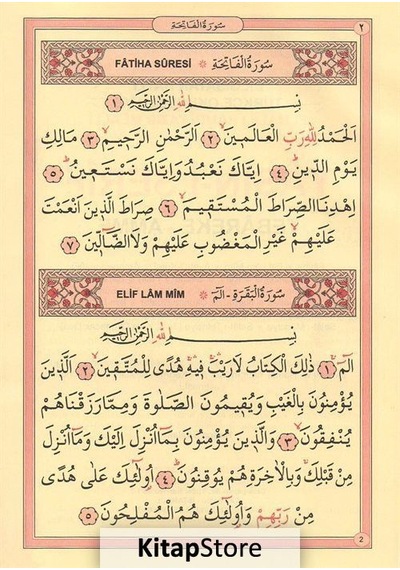 سورة الفاتحة ٢
FÂTİHA SÛRESİ * سُورَةُ الْفَاتِحَةِ
بِسْمِ اللّٰهِ الرَّحْمٰنِ الرَّحِيمِ ١
اَلْحَمْدُ لِلّٰهِ رَبِّ الْعَالَمِينَۙ ٢ اَلرَّحْمٰنِ الرَّحِيمِۙ ٣ مَالِكِ
يَوْمِ الدِّينِۜ ٤ اِيَّاكَ نَعْبُدُ وَاِيَّاكَ نَسْتَعِينُۜ ٥
اِهْدِنَا الصِّرَاطَ الْمُسْتَقِيمَۙ ٦ صِرَاطَ الَّذِينَ اَنْعَمْتَ
عَلَيْهِمْۙ غَيْرِ الْمَغْضُوبِ عَلَيْهِمْ وَلَا الضَّٓالِّينَ ٧
ELİF LÂM MÎM * سُورَةُ الْبَقَرَةِ - الٓمٓ
بِسْمِ اللّٰهِ الرَّحْمٰنِ الرَّحِيمِ
الٓمٓۜ ١ ذٰلِكَ الْكِتَابُ لَا رَيْبَۚۛ فِيهِۚۛ هُدًى لِلْمُتَّقِينَۙ ٢ اَلَّذِينَ
يُؤْمِنُونَ بِالْغَيْبِ وَيُقِيمُونَ الصَّلٰوةَ وَمِمَّا رَزَقْنَاهُمْ
يُنْفِقُونَۙ ٣ وَالَّذِينَ يُؤْمِنُونَ بِمَٓا اُنْزِلَ اِلَيْكَ وَمَٓا اُنْزِلَ
مِنْ قَبْلِكَۚ وَبِالْاٰخِرَةِ هُمْ يُوقِنُونَۜ ٤ اُو۬لٰٓئِكَ عَلٰى هُدًى
مِنْ رَبِّهِمْ وَاُو۬لٰٓئِكَ هُمُ الْمُفْلِحُونَ ٥
2
KitapStore